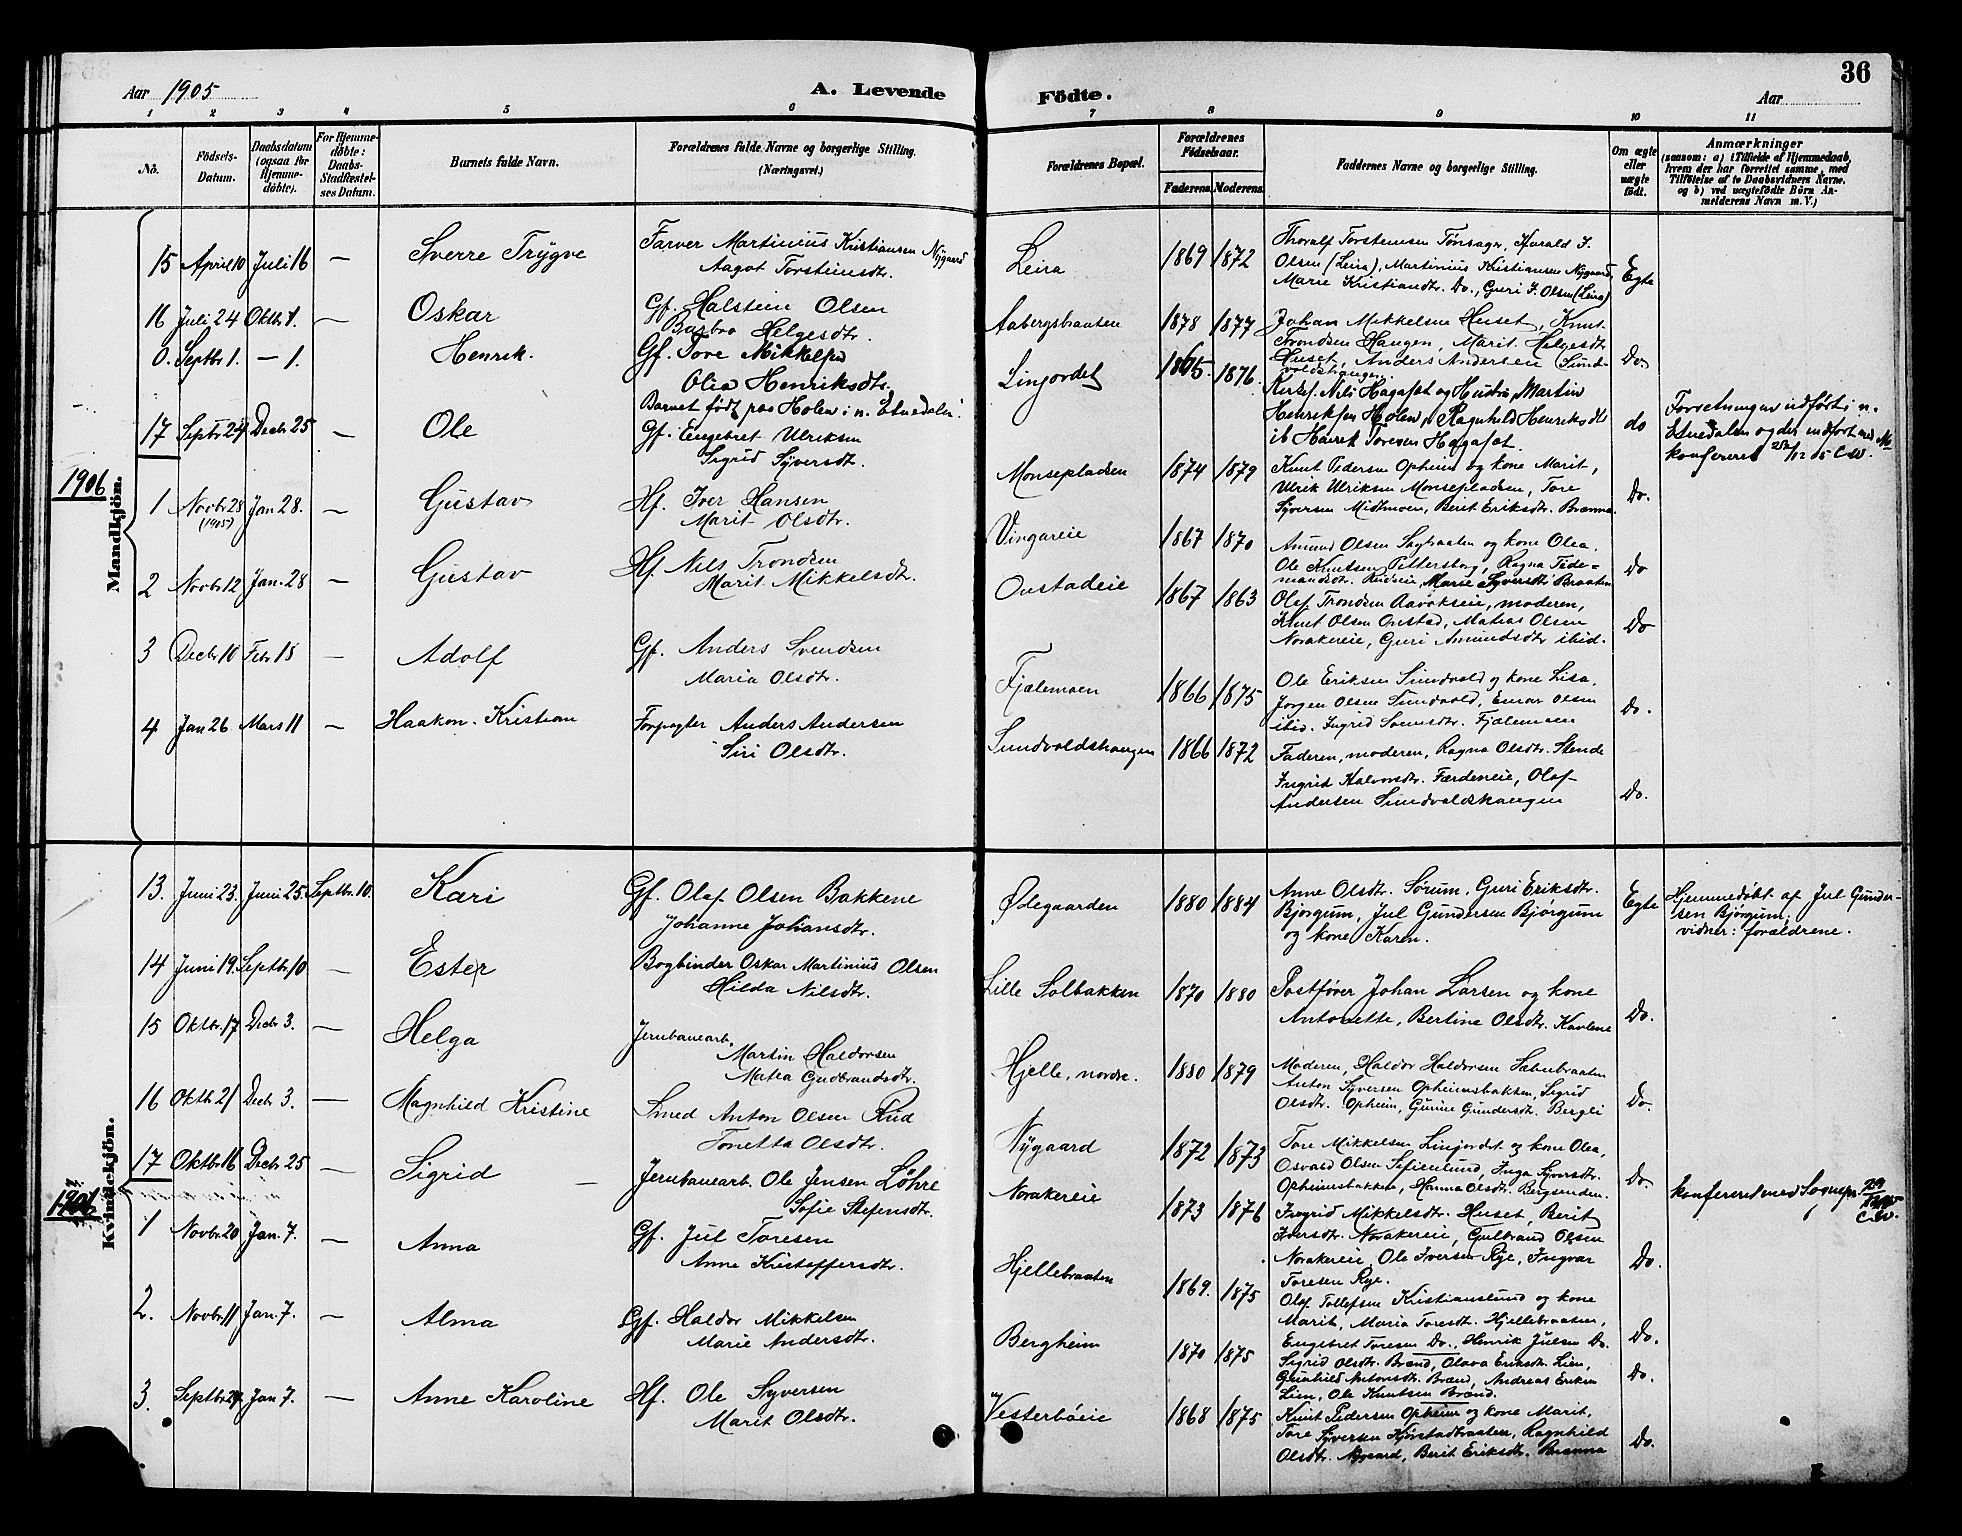 36
Aar 1905
A. Levende Födte.
Aar
1 2 3 4 5 6 7 8 9 10 11
No.
Födsels-Datum.
Daabsdatum (ogsaa for Hjemme-döbte).
For Hjemme-döbte: Daabs-Stadfæstel-ses Datum.
Barnets fulde Navn.
Forældrenes fulde Navne og borgerlige Stilling. (Næringsvei.)
Forældrenes Bopæl.
Forældrenes Födselsaar.
Faderens. Moderens.
Faddernes Navne og borgerlige Stilling.
Om ægte eller uægte födt.
Anmærkninger
(saasom: a) i Tilfælde af Hjemmedaab, hvem der har forrettet samme, med Tilföielse af to Daabsvidners Navne, og b) ved uægtefödte Börn An-melderens Navn m. V.)
Mandkjön.
15 April 10 Juli 16 — Sverre Trygve Farver Martinius Kristiansen Nygaard
Aagot Torsteinsdtr.
Leira 1869 1872 Thoralf Torstensen Tonsager, Harald J.
Olsen (Leira), Martinius Kristiansen Nygaard,
Marie Kristiansdtr. Do., Guri J. Olsen (Leira)
Egte
16 Juli 24 Oktbr 1. — Oskar Gf. Halstein Olsen
Barbro Helgesdtr.
Aabergsbraaten 1878 1877 Johan Mikkelsen Huset, Knut
Trondsen Haugen, Marit Helgesdtr
Huset, Anders Andersen Sund-
voldshaugen.
Do.
0. Septbr 1. — 1. Henrik. Gf. Tore Mikkelsen
Olia Henriksdtr.
Barnet født paa Holen i n. Etnedalen.
Linjordet 1865. 1876. Kirkes. Nils Hagaset og Hustru, Martin
Henriksen Holen, Ragnhild Henriksdtr
ib Henrik Toresen Hagaset
do
Forretningen udført i n.
Etnedalen og der indført med No
konfereret 28/12 05 CW.
17 Septbr 24 Decbr 25 — Ole Gf. Engebret Ulriksen
Sigrid Syversdt.
Monsepladsen 1874 1879 Knut Pedersen Opheim og kone Marit,
Ulrik Ulriksen Monsepladsen, Tore
Syversen Midtmoen, Berit Eriksdtr. Brenna.
Do.
1906
1 Novbr 28 (1905) Jan 28. — Gustav Hf. Iver Hansen
Marit Olsdtr.
Vingareie 1867 1870 Amund Olsen Sagbraaten og kone Olea,
Ole Knutsen Pettersborg, Ragna Tide-
mandsdtr. Rudseie, Marie Syversdtr Braaten
Do
2 Novbr 12 Jan. 28 — Gustav Hf. Nils Trondsen
Marit Mikkelsdtr.
Onstadeie 1867 1863 Olaf Trondsen Aavokseie, moderen,
Knut Olsen Onstad, Matias Olsen
Norakereie, Guri Amundsdtr ibid.
Do
3 Decbr 10 Febr 18 — Adolf Gf. Anders Svendsen
Maria Olsdtr.
Fjelemoen 1866 1875 Ole Eriksen Sundvold og kone Lisa,
Jorgen Olsen Sundvold, Einar Olsen
ibid. Ingrid Svensdtr. Fjelemoen
Do.
4 Jan 26 Mars 11 — Haakon Kristian Forpagter Anders Andersen
Siri Olsdtr.
Sundvoldshaugen 1866 1872 Faderen, moderen, Ragna Olsdtr. Stende
Ingrid Halvorsdtr. Færdeneie, Olaf
Andersen Sundvoldshaugen
Do.
Kvindekjön.
13. Juni 23. Juni 25. Septbr. 10. Kari Gf. Olaf Olsen Bakkene
Johanne Johansdtr.
Ødegaarden 1880 1884 Anne Olsdtr. Sorum, Guri Eriksdtr.
Bjorgum, Jul Gundersen Bjørgum
og kone Karen.
Egte
Hjemmedøbt af Jul Gunder-
sen Bjørgum;
vidner: forældrene.
14 Juni 19. Septbr 10 — Ester Bogbinder Oskar Martinius Olsen
Hilda Nilsdtr.
Lille Solbakken 1870 1880 Postfører Johan Larsen og kone
Antonette, Bertine Olsdtr.
Do.
15 Oktbr 17 Decbr 3. — Helga Jernbanearb.
Martin Haldorsen
Matea Gudbrandsdtr.
Hjelle, nordre. 1880 1879 Moderen, Haldor Haldorsen
Anton Syversen Opheimsbakken, Sigrid
Olsdtr. Opheim, Gurine Gundersdt. Bergli
Do.
16 Oktbr 21 Decbr 3. — Magnhild Kristine Smed Anton Olsen Rud
Tonetta Olsdtr.
Nygaard 1872 1873 Tore Mikkelsen Linjordet og kone Olea,
Osvald Olsen Sefienlund, Inga Syversdtr.
Opheimsbakken, Hanna Olsdtr. Bergsenden.
Do.
17 Oktbr 16 Decbr 25 — Sigrid — Jernbanearb. Ole Jensen Løhre
Sofie Stefensdtr.
Norakereie 1873 1876 Ingrid Mikkelsdtr. Huset, Berit
Iversdtr. Norakereie, Gulbrand Olsen
Norakereie, Ole Iversen Rye, Ingvar
Toresen Rye.
Do.
konfereret med Sognepr. 29/12 1905
C.W.
1906
1 Novbr. 20 Jan. 7. — Anna Gf. Jul Toresen
Anne Kristoffersdtr.
Hjellebraaten 1869. 1875 Olaf Tollefsen Kristianslund og kone
Marit, Maria Toresdt. Hjellebraaten,
Engebret Toresen Do., Henrik Julsen Do.
Do.
2. Novbr. 11 Jan. 7. — Alma Gf. Haldor Mikkelsen
Marie Andersdtr.
Bergheim 1870 1875 Sigrid Olsdtr. Brand, Olava Eriksdtr. Lien,
Gunhild Antonsdtr. Brand, Andreas Eriksen
Lien, Ole Knutsen Brand.
Do.
3. Septbr. 24 Jan 7. — Anne Karoline Hf. Ole Syversen
Marit Olsdtr.
Vesterbøeie 1868 1875 Knut Pedersen Opheim og kone Marit,
Tore Syversen Ragnhild
Olsdtr. Nygaard, Berit Eriksdtr. Brenna
Do.